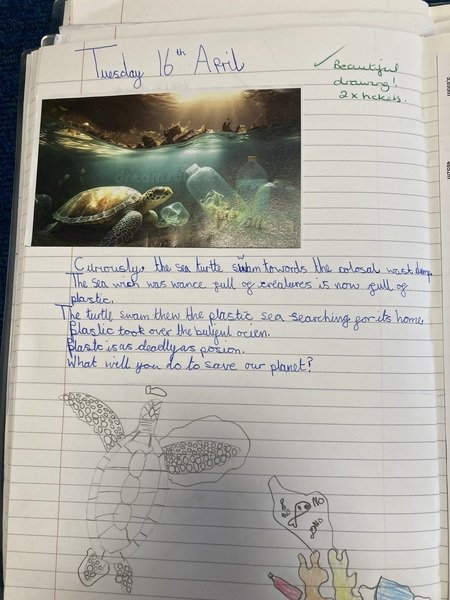 Tuesday 16th April
✓ Beautiful
drawing!
2 x tickets.
dreamstime
Curiously, the sea turtle swam towards the colosal wast dump.
The sea wich was wance full of creatures is now full of
plastic.
The turtle swam thew the plastic sea searching for its home.
Plastic took over the butiful ocien.
Plastc is as deadly as posion.
What will you do to save our planet?
NO
NO
NO